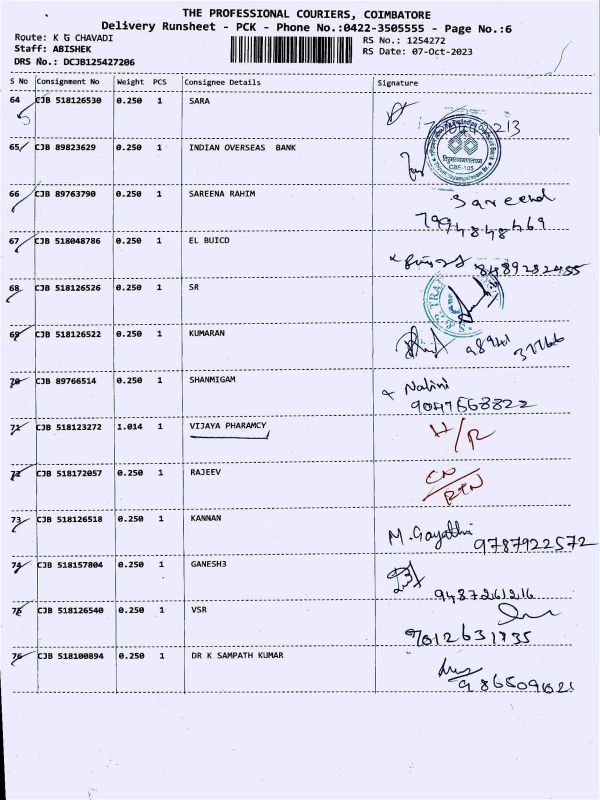 THE PROFESSIONAL COURIERS, COIMBATORE
Delivery Runsheet - PCK - Phone No.:0422-3505555 - Page No.:6
Route: K G CHAVADI
RS No.: 1254272
Staff: ABISHEK
RS Date: 07-Oct-2023
DRS No.: DCJB125427206
S No Consignment No Weight PCS Consignee Details Signature
64 CJB 518126530 0.250 1 SARA
65 CJB 89823629 0.250 1 INDIAN OVERSEAS BANK
CBE-105
66 CJB 89763790 0.250 1 SAREENA RAHIM Sareena
7994848469
67 CJB 518048786 0.250 1 EL BUICD
8489282455
68 CJB 518126526 0.250 1 SR
69 CJB 518126522 0.250 1 KUMARAN
70 CJB 89766514 0.250 1 SHANMIGAM Nalini
9047568822
71 CJB 518123272 1.014 1 VIJAYA PHARAMCY H/R
72 CJB 518172057 0.250 1 RAJEEV CN
RTN
73 CJB 518126518 0.250 1 KANNAN M. Gayathri 9787922572
74 CJB 518157804 0.250 1 GANESH3
9487261216
75 CJB 518126540 0.250 1 VSR
9012631735
76 CJB 518100894 0.250 1 DR K SAMPATH KUMAR